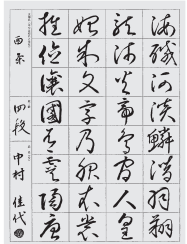 海鹹河淡鱗潛羽翔
龍師火帝鳥官人皇
始制文字乃服衣裳
推位讓國有虞陶唐
四段 中村 佳代